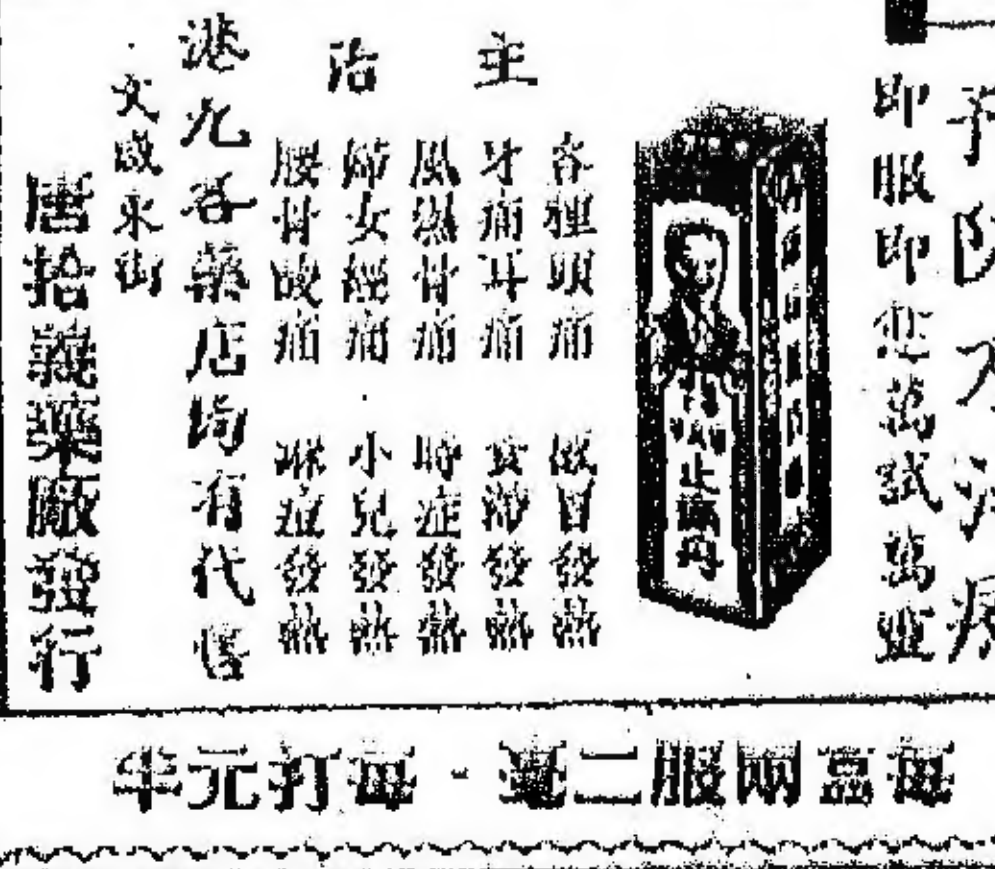 即服即愈萬試萬靈
止痛丹
主治
各種頭痛 感冒發熱
牙痛耳痛 食滯發熱
風濕骨痛 時症發熱
婦女經痛 小兒發熱
腰骨酸痛 麻痘發熱
港九各藥店均有代售
文咸東街
唐拾義藥廠發行
每盒兩服二毫·每打元半